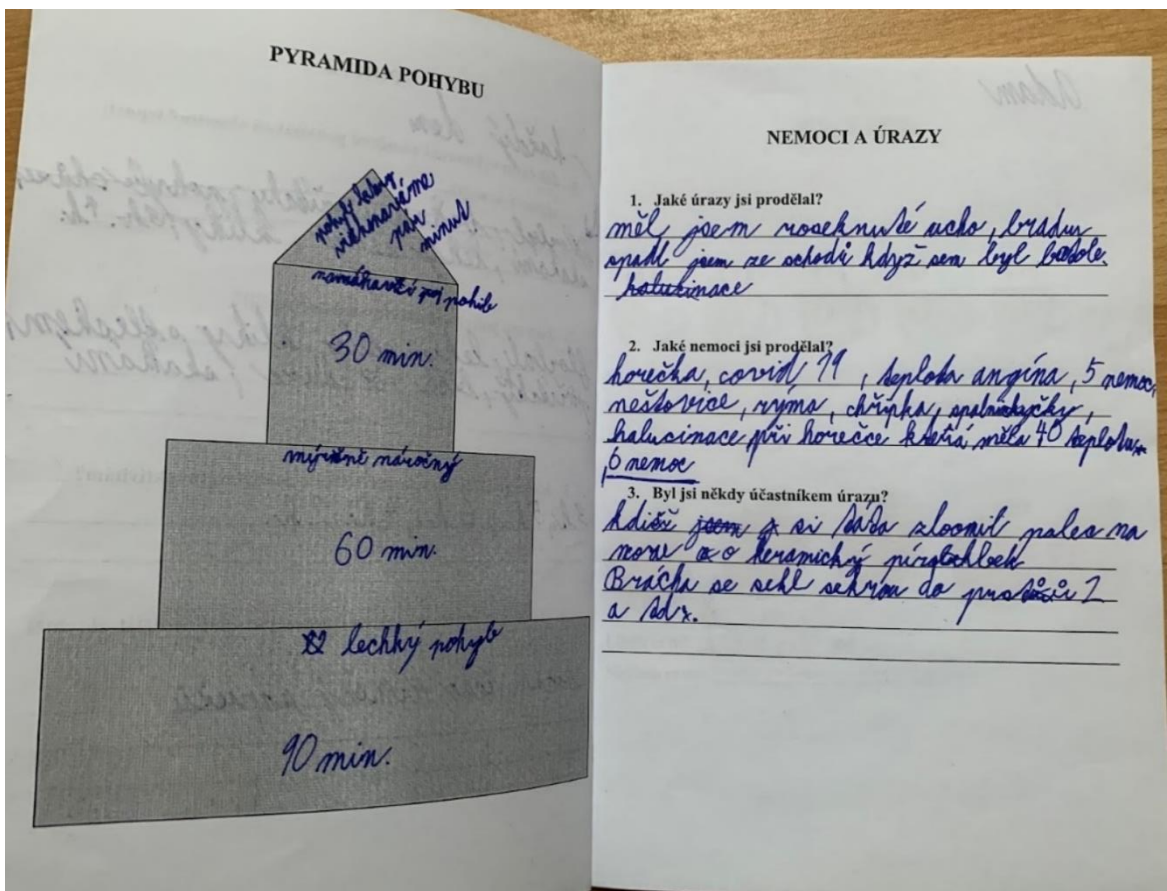 PYRAMIDA POHYBU
pohyb který
vickonaváme
pár
minut
namáhavěčí pohib
30 min.
mýrně náročný
60 min.
lechký pohyb
90 min.
Adam
NEMOCI A ÚRAZY
1. Jaké úrazy jsi prodělal?
měl jsem roseknuté ucho, bradu
spadl jsem ze schodů když sem byl
halucinace
2. Jaké nemoci jsi prodělal?
horečka, covid 19, teplota angína, 5 nemoc,
neštovice, rýma, chřipka, spalničky,
halucinace při horečce která měla 40 teplotu
6 nemoc
3. Byl jsi někdy účastníkem úrazu?
si táta zloomil palec na
noze o keramický
Brácha se sekl sekrou do prstů 2
a